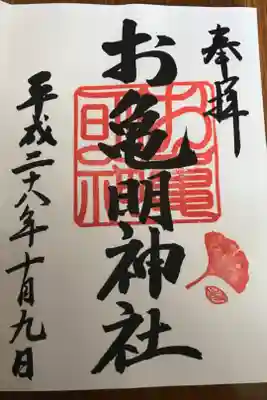 奉拝
お亀明神社
平成二十八年十月九日